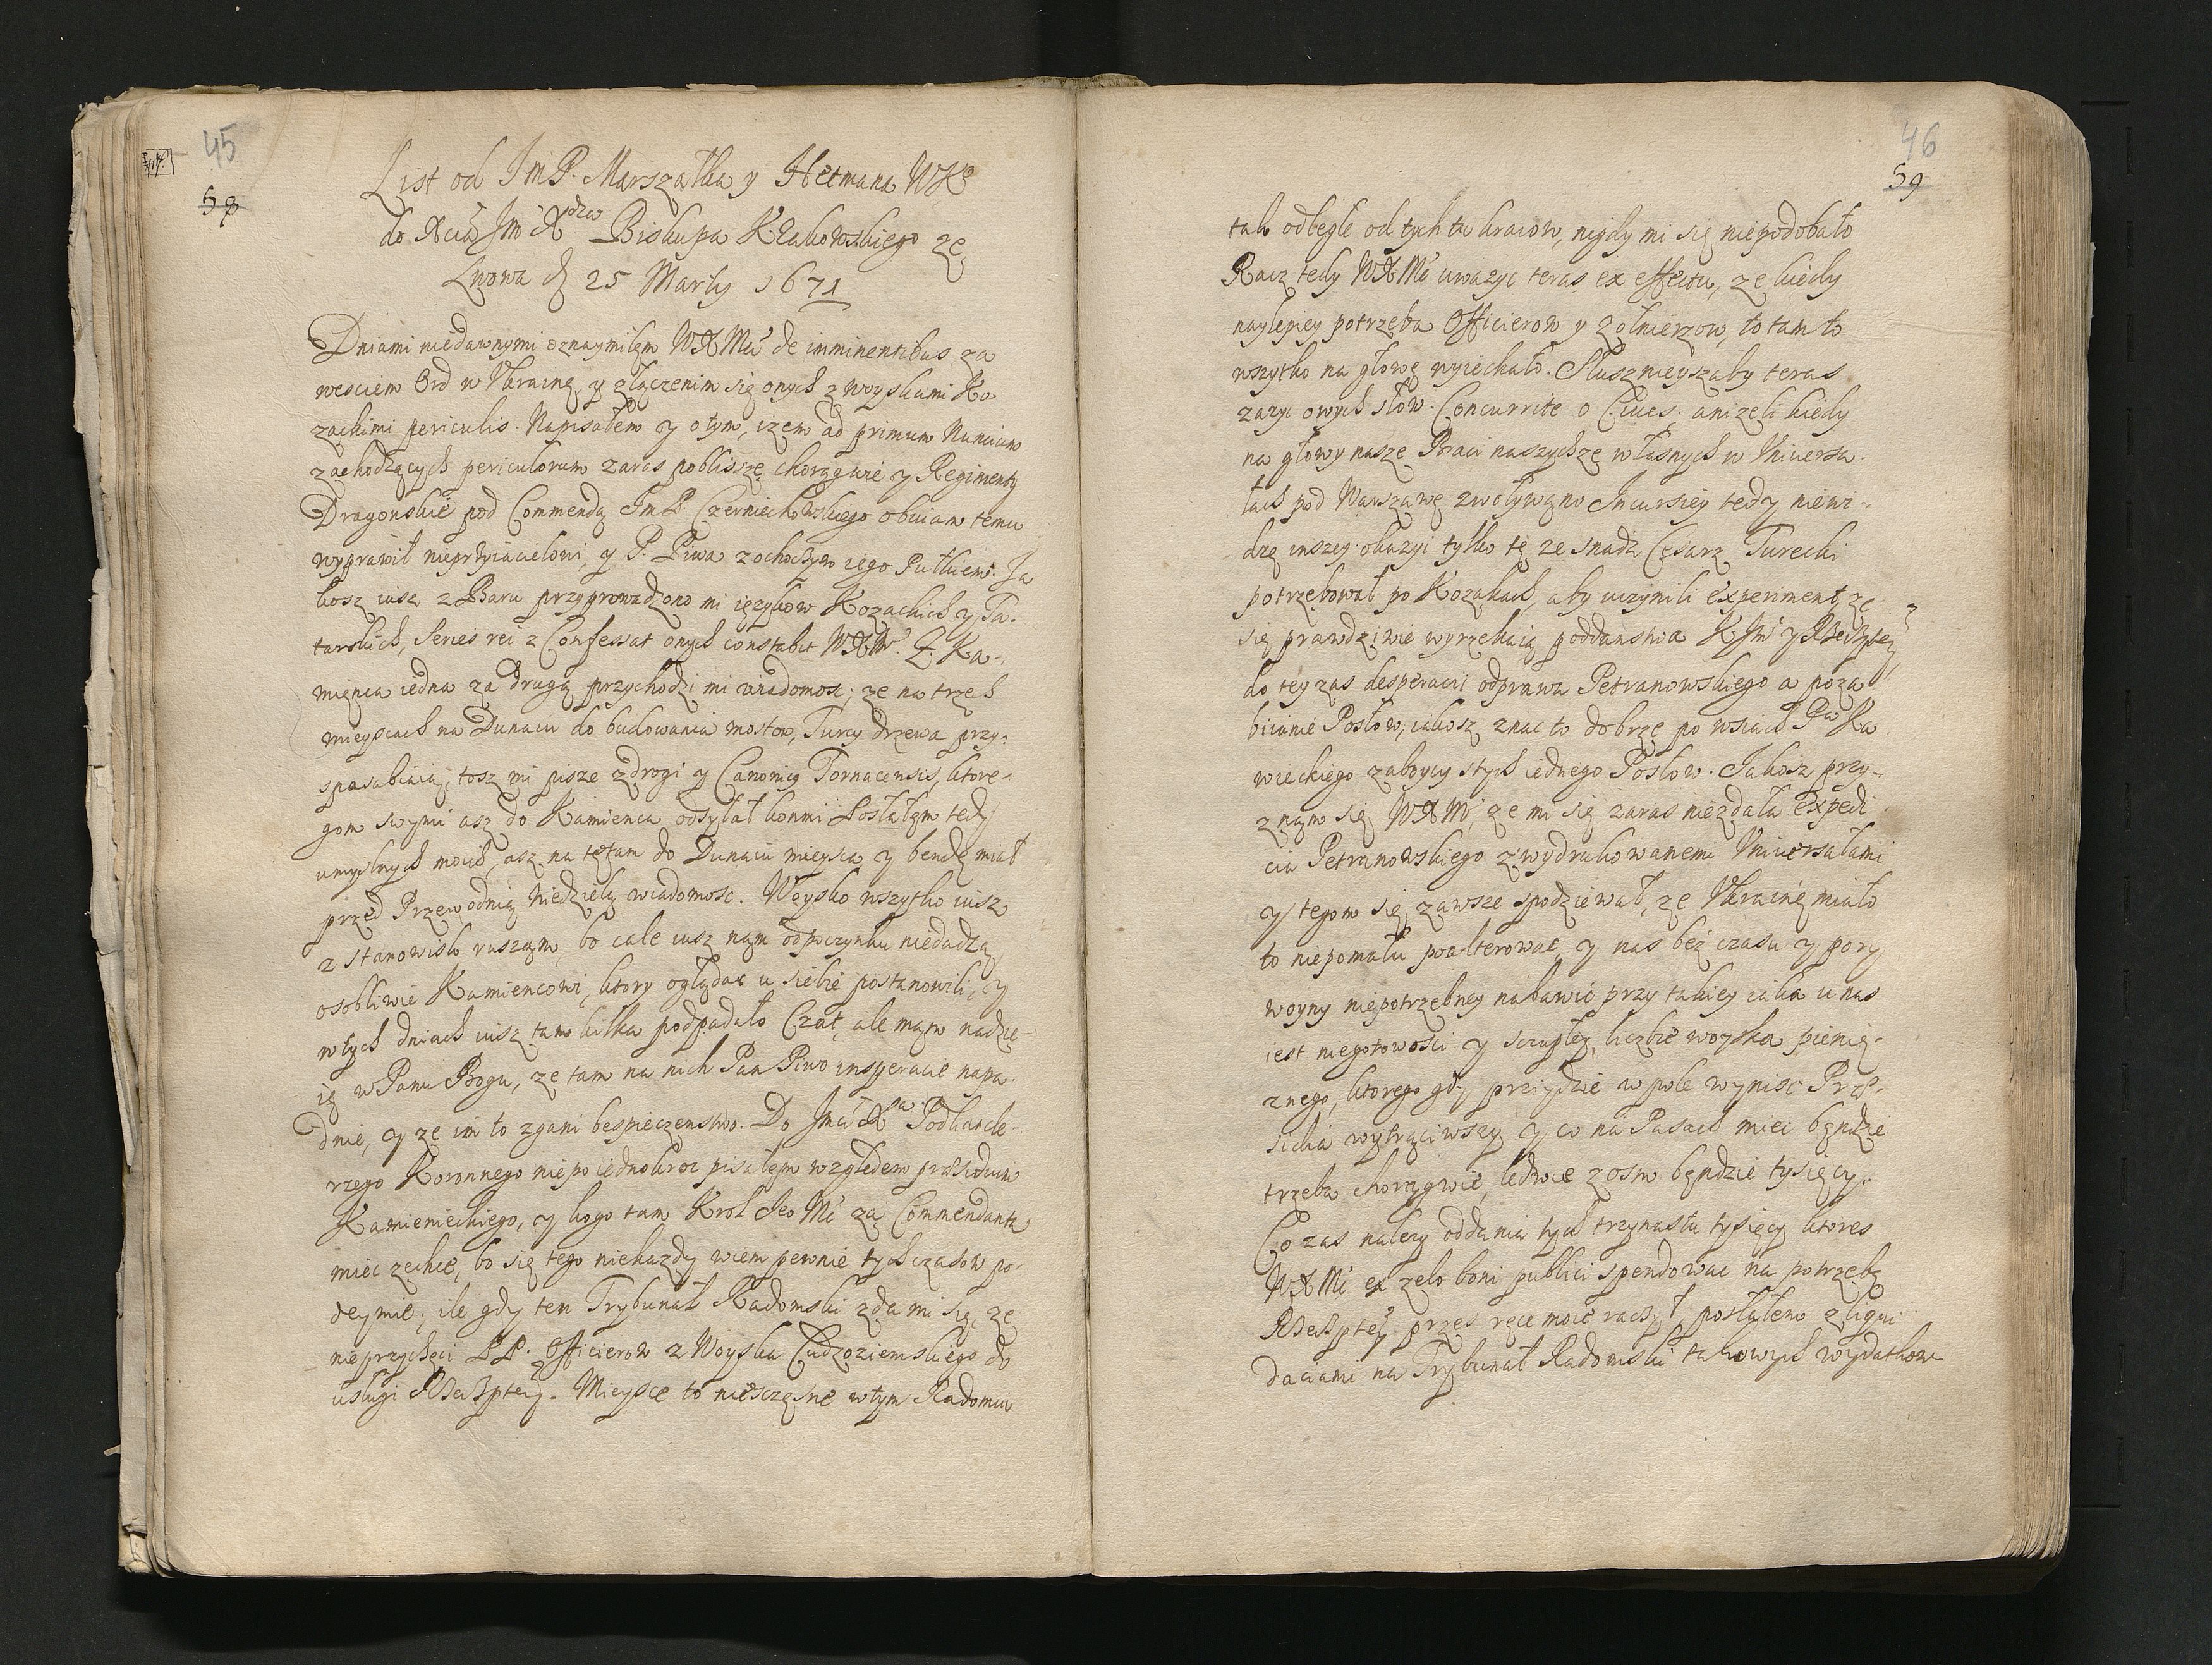 45
58
List od JmP. Marszałka y Hetmana WK°
do Xcia Jm Xdza Biskupa Krakowskiego ze
Lwowa d 25 Marty 1671
Dniami niedawnymi oznaymiłem WXMci de imminentibus za
wesciem Ord w Ukrainę y złączenim się onych z woyskami Ko
zackimi periculis. Napisałem y o tym, izem ad primum Nuncium
zachodzących periculorum zaras pobliszsze chorągwie y Regimenty
Dragonskie pod Commendą JmP. Czerniechowskiego obviam temu
wyprawił nieprzyiacielowi, y P. Piwa z ochoczym iego Pułkiem. Ja
kosz iusz z Baru przyprowadzono mi ięzykow Kozackich y Ta-
tarskich, Series rei z Confessat onych constabit WXM. Z Ka-
mięnca iedna za drugą przychodzi mi wiadomosc, ze na trzech
mieyscach na Dunaiu do budowania mostow, Turcy drzewa przy-
sposabiaią, tosz mi pisze z drogi y Canonicg Tornacensis, ktore-
gom swymi asz do Kamienca odsyłał konmi Posłałem tedy
umyslnych moich, asz na te tam do Dunaiu mieysca y bendę miał
przed Przewodnią Niedzielą wiadomosc. Woysko wszytko iusz
z stanowisk ruszam, bo cale iusz nam odpoczynku niedadzą,
osobliwie Kamiencowi, ktory oglądac u siebie postanowili, y
w tych dniach iusz tam kilka podpadało Czat, ale mam nadzie-
ię w Panu Bogu, ze tam na nich Pan Piwo insperacie napa-
dnie, y ze im to zgani bespieczenstwo. Do Jmci Xa Podkancle-
rzego Koronnego niepoiednokroc pisałem względem praesidium
Kamienieckiego, y kogo tam Krol Jeo Mc za Commendanta
miec zechce, bo się tego niekazdy wiem pewnie tych czasow po-
deymie; ile gdy ten Trybunał Radomski zda mi się, ze
nieprzychęci PP. Officierow z Woyska Cudzoziemskiego do
usługi Rzeczptey. Mieysce to niesczęsne w tym Radomiu
46
59
tak odległe od tych tu kraiow, nigdy mi się niepodobało
Racz tedy WXMc uwazyc teras ex effectu, ze kiedy
naylepiey potrzeba Officierow y Zołnierzow, to tam to
wszytko na głowę wyiechało. Słusznieyszaby teras
zazyc owych słow. Concurrite o Cives, anizeli kiedy
na głowy nasze Braci naszychze własnych w Universa-
łach pod Warszawę zwoływano Incursiey tedy niewi-
dzę inszey okazyi tylko tę ze snadz Cesarz Turecki
potrzebował po Kozakach, aby uczynili experiment, ze
się prawdziwie wyrzekaią poddanstwa KJMci y Rzeczptey,
do tey zas desperacii odprawa Petranowskiego a poza
biianie Posłow, iakosz znac to dobrze po wsiach Pa Ka
wieckiego zaboycy stych iednego Posłow. Jakosz przy-
znam się WXMci, ze mi się zaras niezdała expedi
cia Petranowskiego z wydrukowanemi Uniwersałami
y tegom się zawsze spodziewał, ze Ukrainę miało
to niepomału poalterowac, y nas bez czasu y pory
woyny niepotrzebney nabawic przy takiey iaka u nas
iest niegotowosci y sczupłey liczbie woyska pienię-
znego, ktorego gdy przyidzie w pole wynisc Prae-
sidia wytrąciwszy y co na Pasach miec bęndzie
trzeba chorągwie, ledwie z osm bęndzie tysięcy.
Co zas nalezy oddania tych trzynastu tysięcy ktores
WXMc ex zelo boni publici spendowac na potrzebę
Rzeczptey przes ręce moie raczył posłałem z liqui
daciami na Trybunał Radomski takowych wydatkow